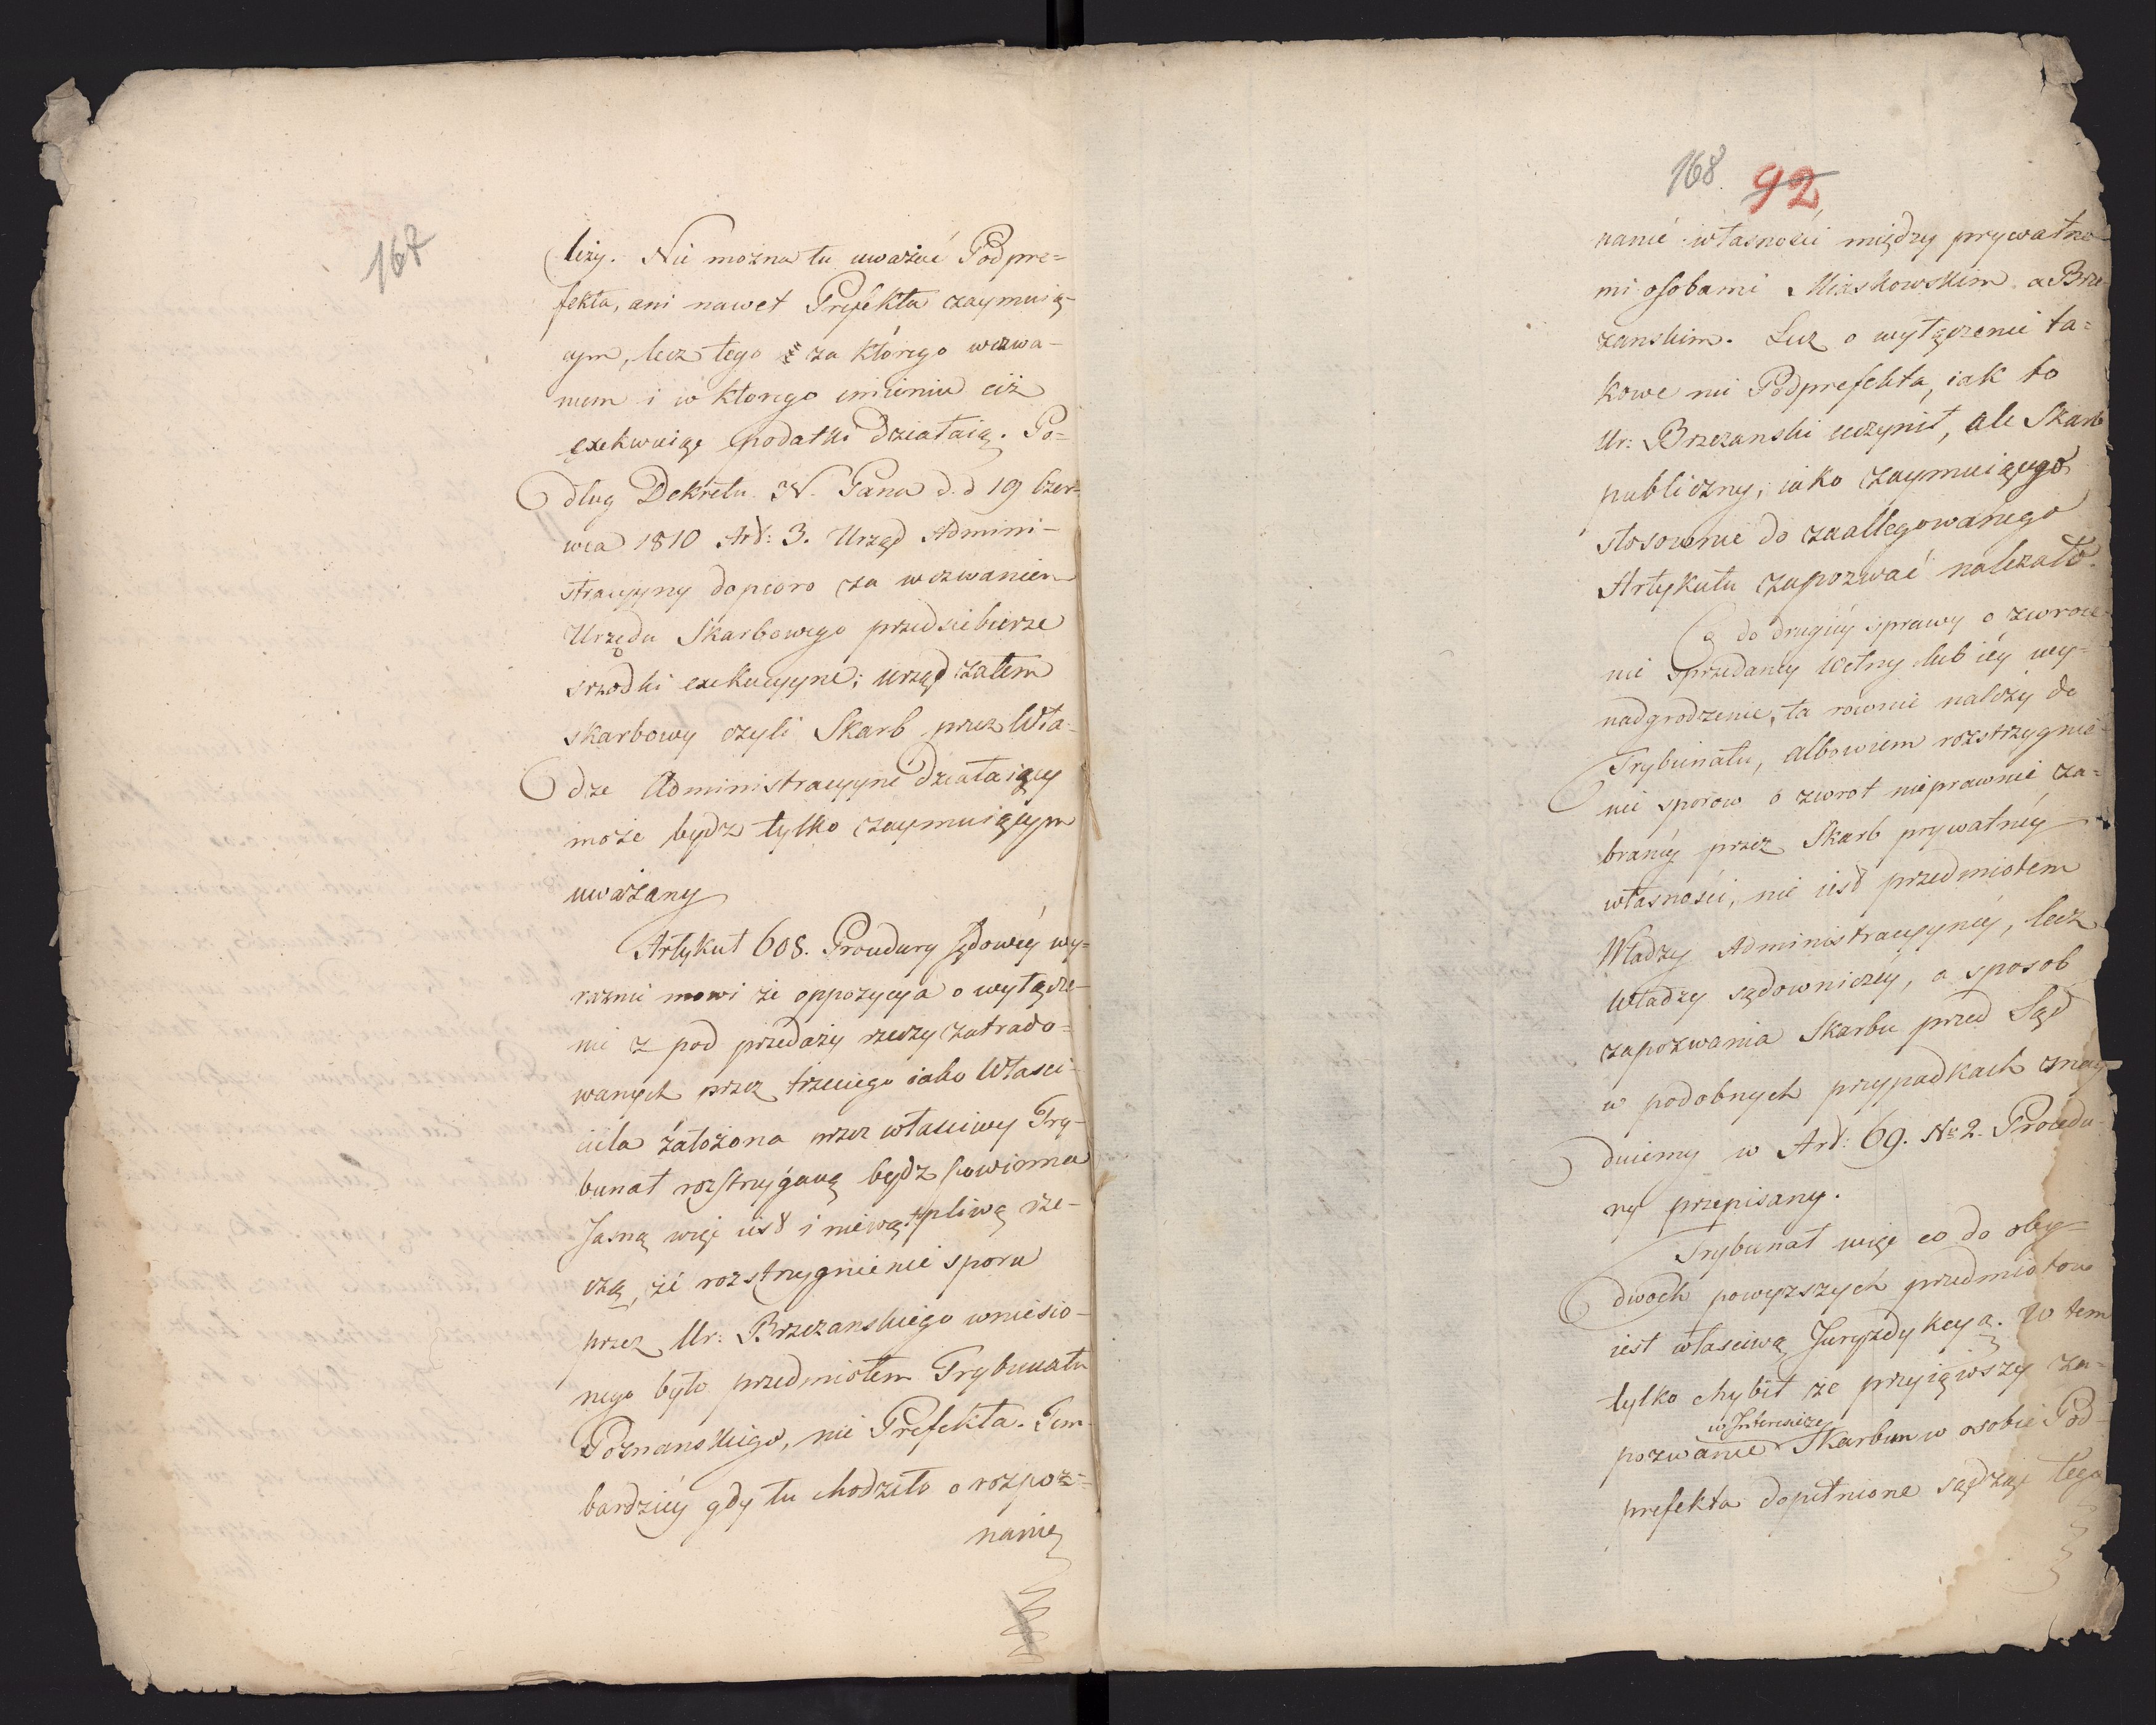 167
leży. Nie można tu uważać Podpre=
fekta, ani nawet Prefekta zaymuią-
cym, lecz tego za którego wezwa-
niem i w ktorego imieniu ciż
exekwuiąc podatki działaią. Po=
dług Dekretu N. Pana d. d 19 Czer-
wca 1810 Art: 3. Urząd Admini-
stracyyny dopioro za wezwaniem
Urzędu Skarbowego przedsiebierze
srzodki exekucyyne; urząd zatem
skarbowy czyli Skarb przez Wła-
dze Administracyyne działaiący
może bydz tylko zaymuiącym
uważany
Artykuł 608. Procedury sądowéy wy=
raznie mowi że oppozycya o wyłącze-
nie z pod przedaży rzeczy zatrado=
wanych przez trzeciego iako Własci-
ciela założona przez właściwy Try-
bunał rozstrzyganą bydz powinna
Jasną więc iest i niewątpliwą rze-
czą, że rozstrzygnienie sporu
przez Ur: Brzezanskiego wniesio-
nego było przedmiotem Trybunału
Poznanskiego, nie Prefekta. Tem
bardziéy gdy tu chodziło o rozpoz=
nanie
168 92
nanie własności między prywatne-
mi osobami Miaskowskim a Brze-
zanskim. Lecz o wyłączenie ta=
kowe nie Podprefekta, iak to
Ur: Brzezanski uczynił, ale Skarb
publiczny, iako zaymuiącego
stosownie do zaallegowanego
Artykułu zapozwać należało.
Co do drugiéy sprawy o zwroce-
nie sprzedanéy Wełny lub iéy wy=
nadgrodzenie, ta rownie należy do
Trybunału, albowiem rozstrzygnie-
nie sporow o zwrot nieprawnie za=
branéy przez Skarb prywatnéy
własności, nie iest przedmiotem
Władzy Administracyynéy, lecz
Władzy sądowniczéy, a sposob
zapozwania Skarbu przed Sąd
w podobnych przypadkach znay-
duiemy w Art: 69. No 2. Procedu-
ry przepisany.
Trybunał więc co do oby-
dwoch powyzszych przedmiotow
iest właściwą Juryzdykcyą. W tem
tylko chybił że przyiąwszy za-
w Interesie
pozwanie Skarbu w osobie Pod-
prefekta dopełnione sądząc tego